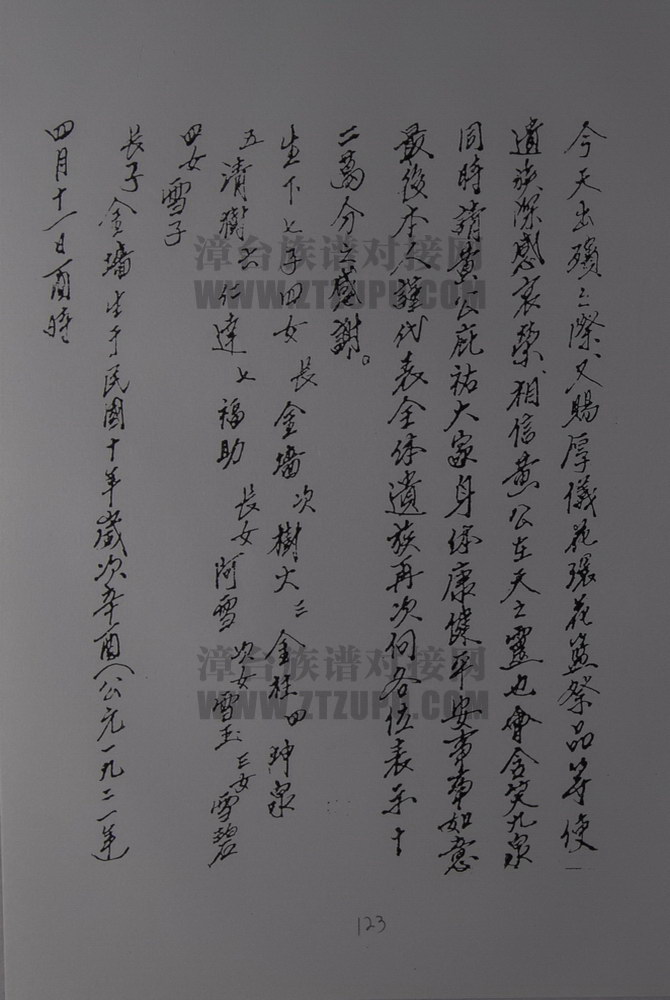 今天出殯之際、又賜厚儀花環花籃祭品等使
遺族深感哀榮、相信黃公在天之靈也會含笑九泉
同時請黃公庇祐大家身体康健平安事事如意
最後本人謹代表全体遺族再次向各位表示十
二萬分之感謝。
生下七子四女 長金墻 次樹火 三金柱 四珅泉
五清樹 六仁達 七福助 長女阿雪 次女雪玉 三女雪碧
四女雪子
長子金墻生于民國十年歲次辛酉(公元一九二一年
四月十一日酉時
漳台族谱对接网
WWW.ZTZUPU.COM
漳台族谱对接网
WWW.ZTZUPU.COM
123